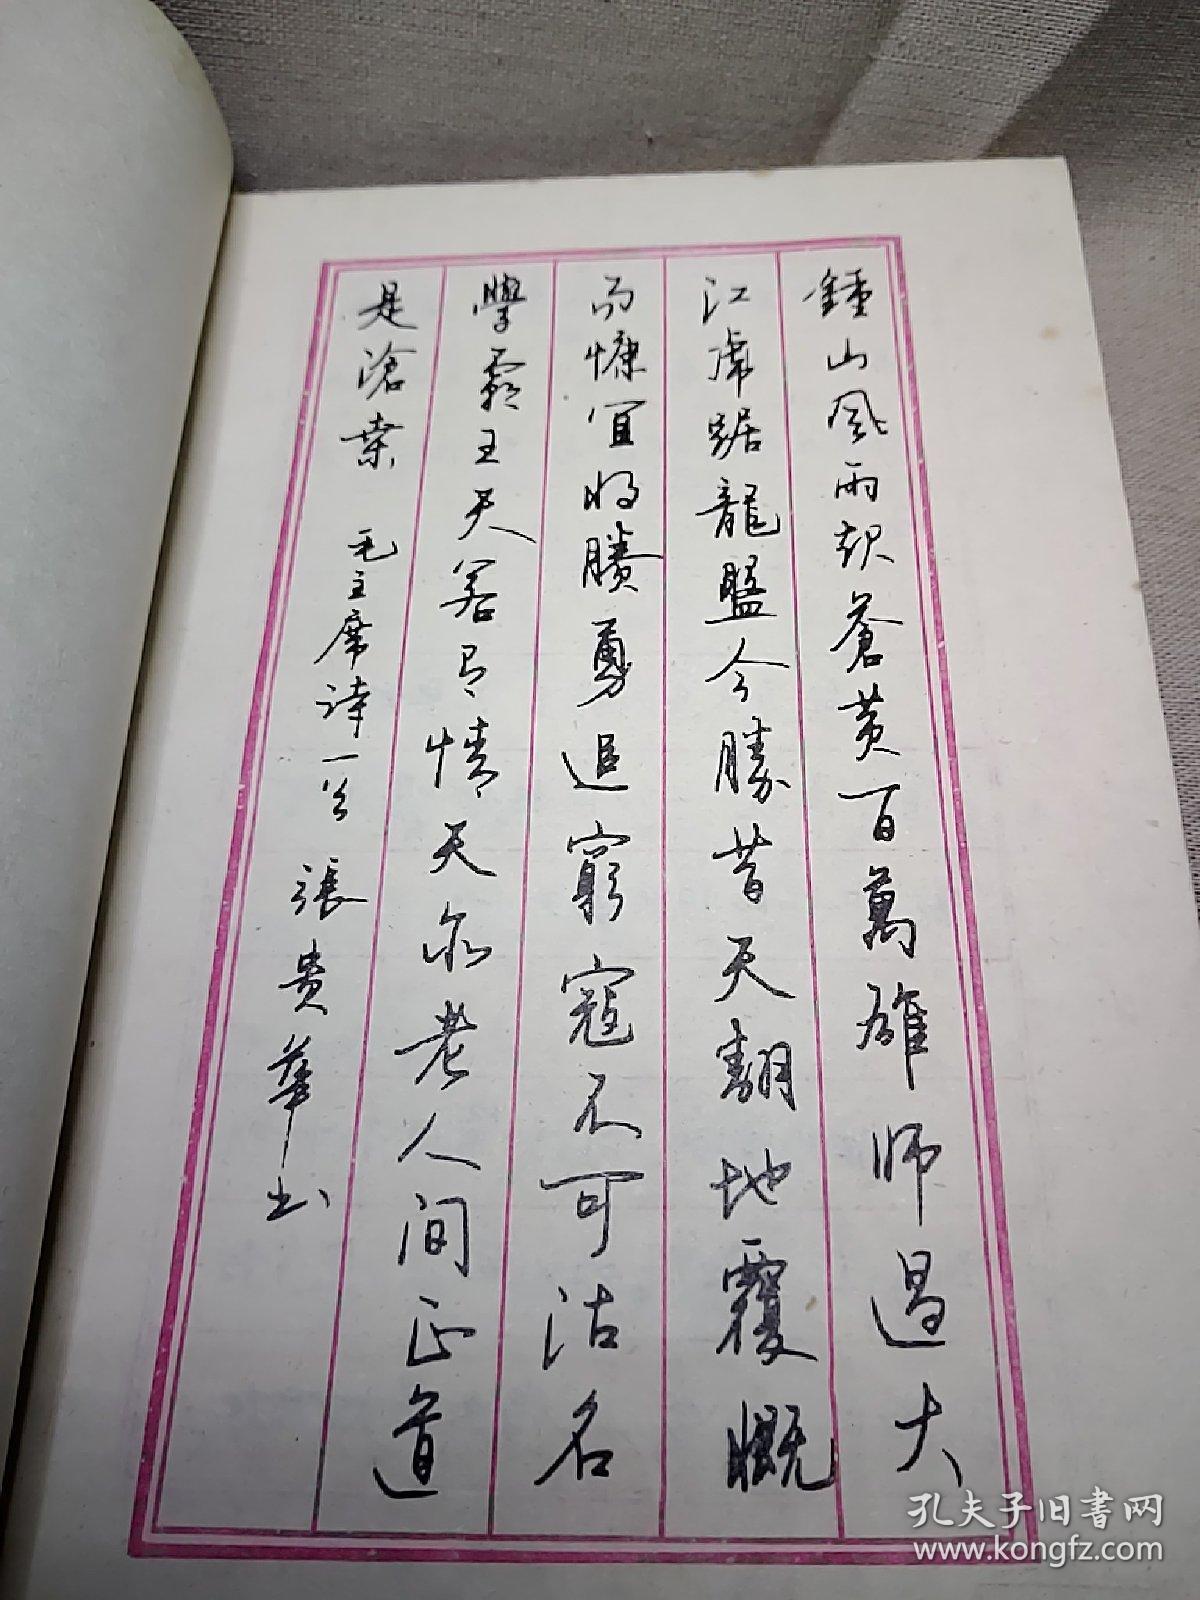 鍾山風雨起蒼黃百萬雄師過大
江虎踞龍盤今勝昔天翻地覆慨
而慷宜將賸勇追窮寇不可沽名
學霸王天若有情天亦老人间正道
是滄桑 毛主席詩一首 張貴華书
孔夫子旧书网
www.kongfz.com